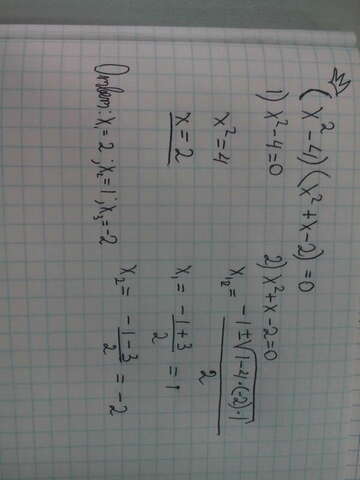 (x²-4)(x²+x-2)=0
1) x²-4=0
x²=4
x=2
2) x²+x-2=0
x₁,₂= (-1±√(1-4·(-2)·1))/2
x₁= (-1+3)/2 =1
x₂= (-1-3)/2 =-2
x₁=2; x₂=1; x₃=-2